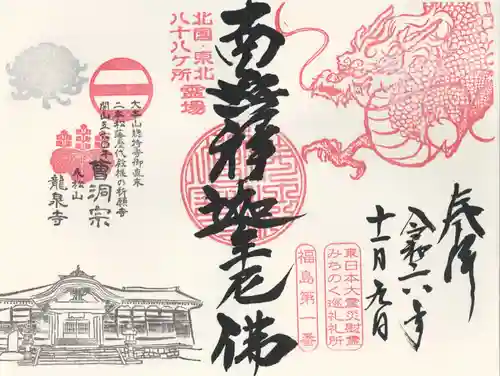 奉拝
令和六年
十一月九日
東日本大震災慰霊
みちのく巡礼札所
福島第一番
南無釈迦牟尼佛
北国・東北
八十八ヶ所霊場
大本山総持寺御直末
二本松藩歴代殿様の祈願寺
曹洞宗
永松山
龍泉寺